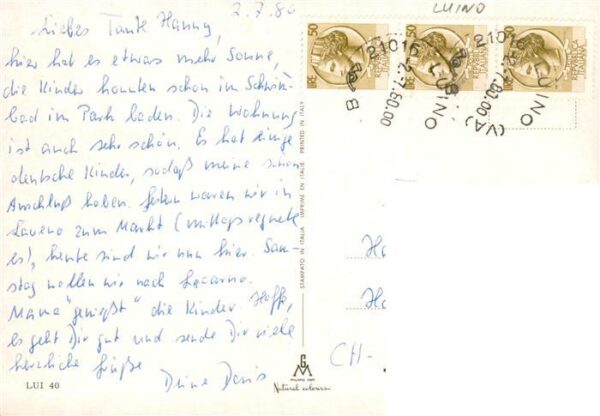 2.7.80
Liebes Tante Hanny,
hier hat es etwas mehr Sonne,
die Kinder konnten schon im Schwim-
bad im Park baden. Die Wohnung
ist auch sehr schön. Es hat einige
deutsche Kinder, sodaß meine schon
Anschluß haben. Gestern waren wir in
Laveno zum Markt (mittags regnete
es), heute sind wir nun hier. Sam-
stag wollen wir nach Locarno.
Mama "genießt" die Kinder. Hoffe,
es geht Dir gut und sende Dir viele
herzliche Grüße
Deine Doris
LUI 40
STAMPATO IN ITALIA IMPRIMÉ EN ITALIE PRINTED IN ITALY
GM
Natural colours
LUINO
50
50
50
21016 LUINO
2.7.80.00
(VA)
Ha
Ha
CH-